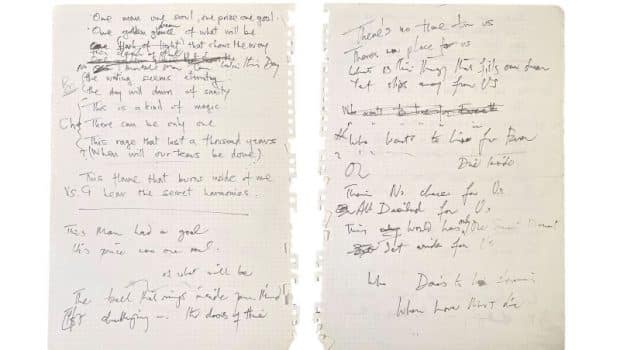 One man one soul, one prize one goal
One golden glance of what will be
flash of light that shows the way
No this Day
the waiting seems eternity
the day will dawn of sanity
This is a kind of magic
There can be only one
This rage that last a thousand years
(When will our be done)
This flame that burns inside of me
I hear the secret harmonies
This Man had a goal
His prize was one
of what will be
The bell that rings inside your Mind
challenging the doors of time
There's no time for us
There's no place for us
What is this thing that fills our
Yet slips away from US
Who wants to Live for Ever
OR
There No chance for Us
All Decided for Us
This World has only One
Set aside for Us
Who Dares to
When Love Must die